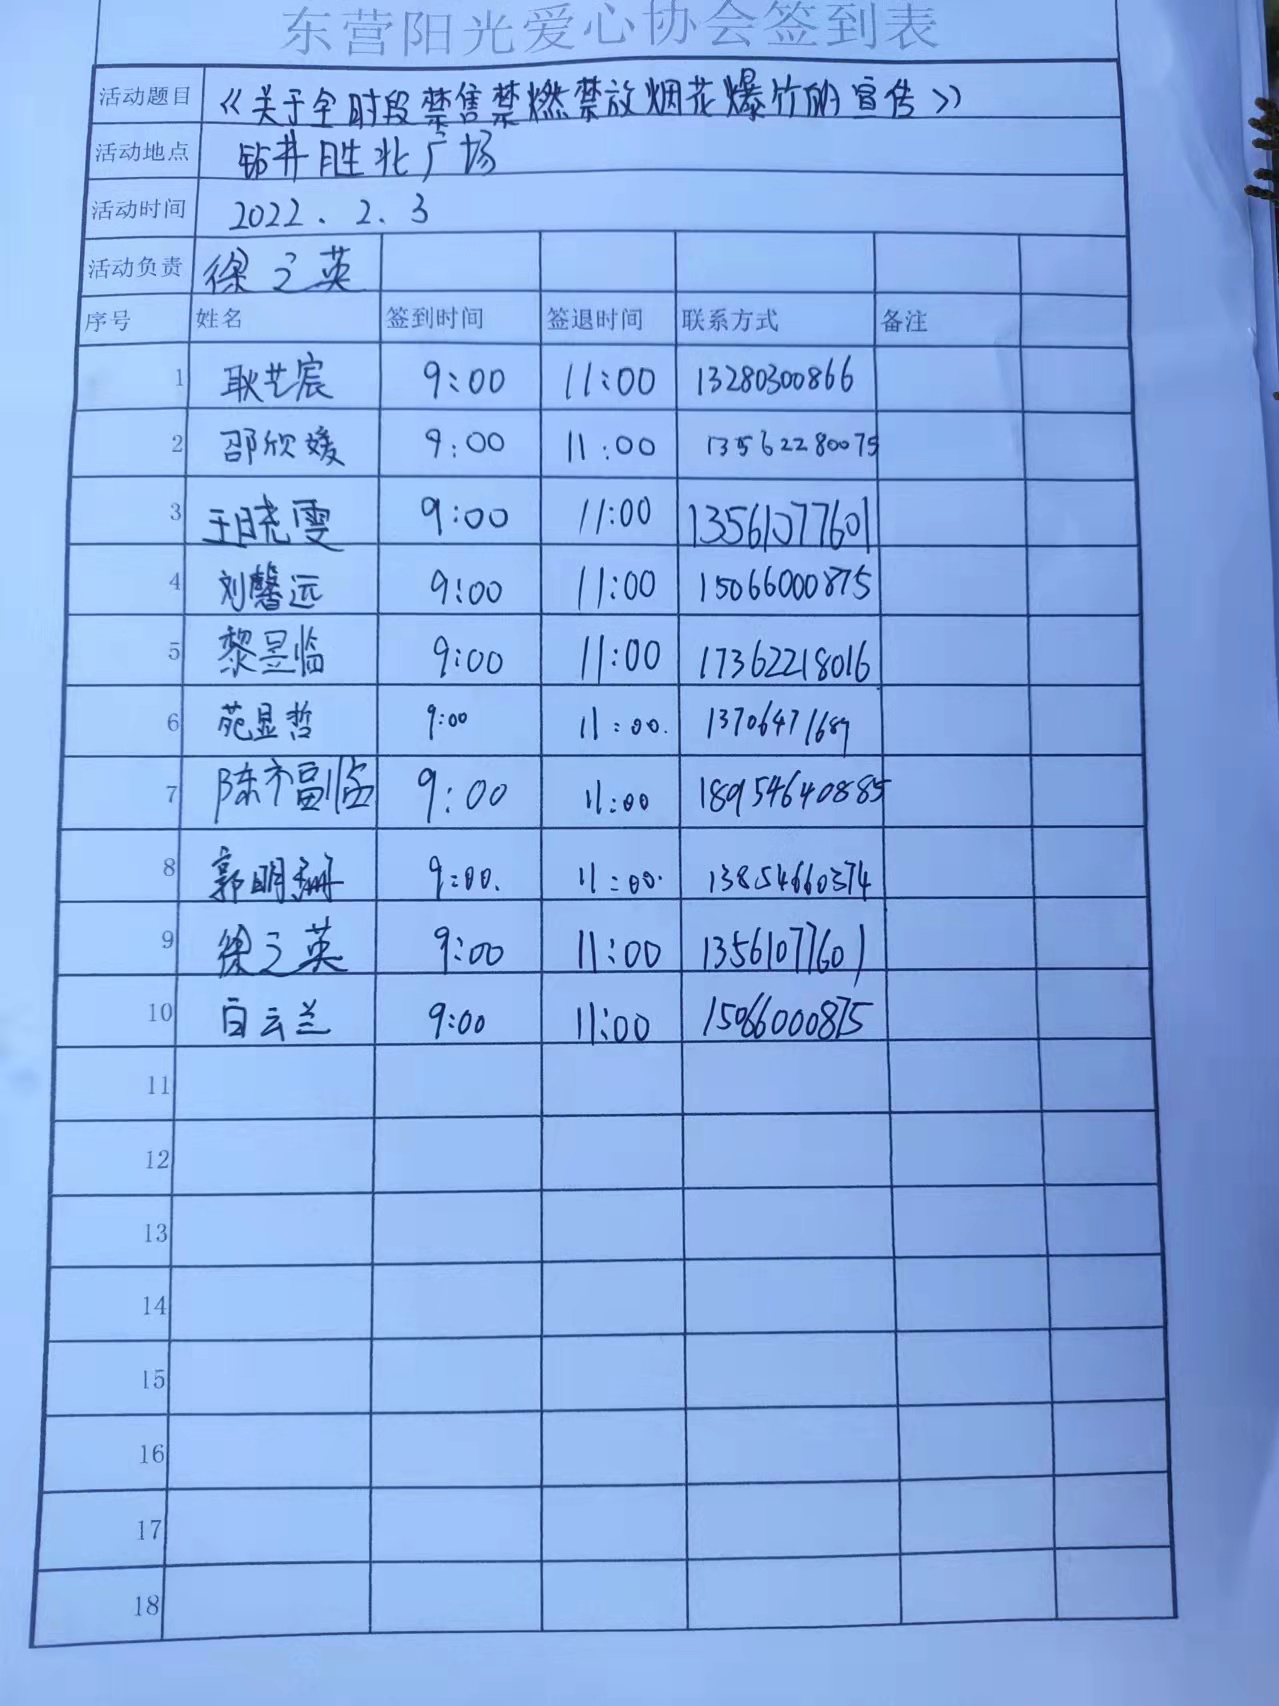 东营阳光爱心协会签到表
活动题目 《关于全时段禁售禁燃禁放烟花爆竹的宣传》
活动地点 钻井胜北广场
活动时间 2022.2.3
活动负责 徐之英
序号 姓名 签到时间 签退时间 联系方式 备注
1 耿艺宸 9:00 11:00 13280300866
2 邵欣媛 9:00 11:00 13562280075
3 王晓雯 9:00 11:00 13561077601
4 刘馨远 9:00 11:00 15066000875
5 黎昱临 9:00 11:00 17362218016
6 苑显哲 9:00 11:00. 13706471689
7 9:00 11:00 18954640885
8 郭明珊 9:00. 11:00. 13854660374
9 徐之英 9:00 11:00 13561077601
10 白云兰 9:00 11:00 15066000875
11
12
13
14
15
16
17
18